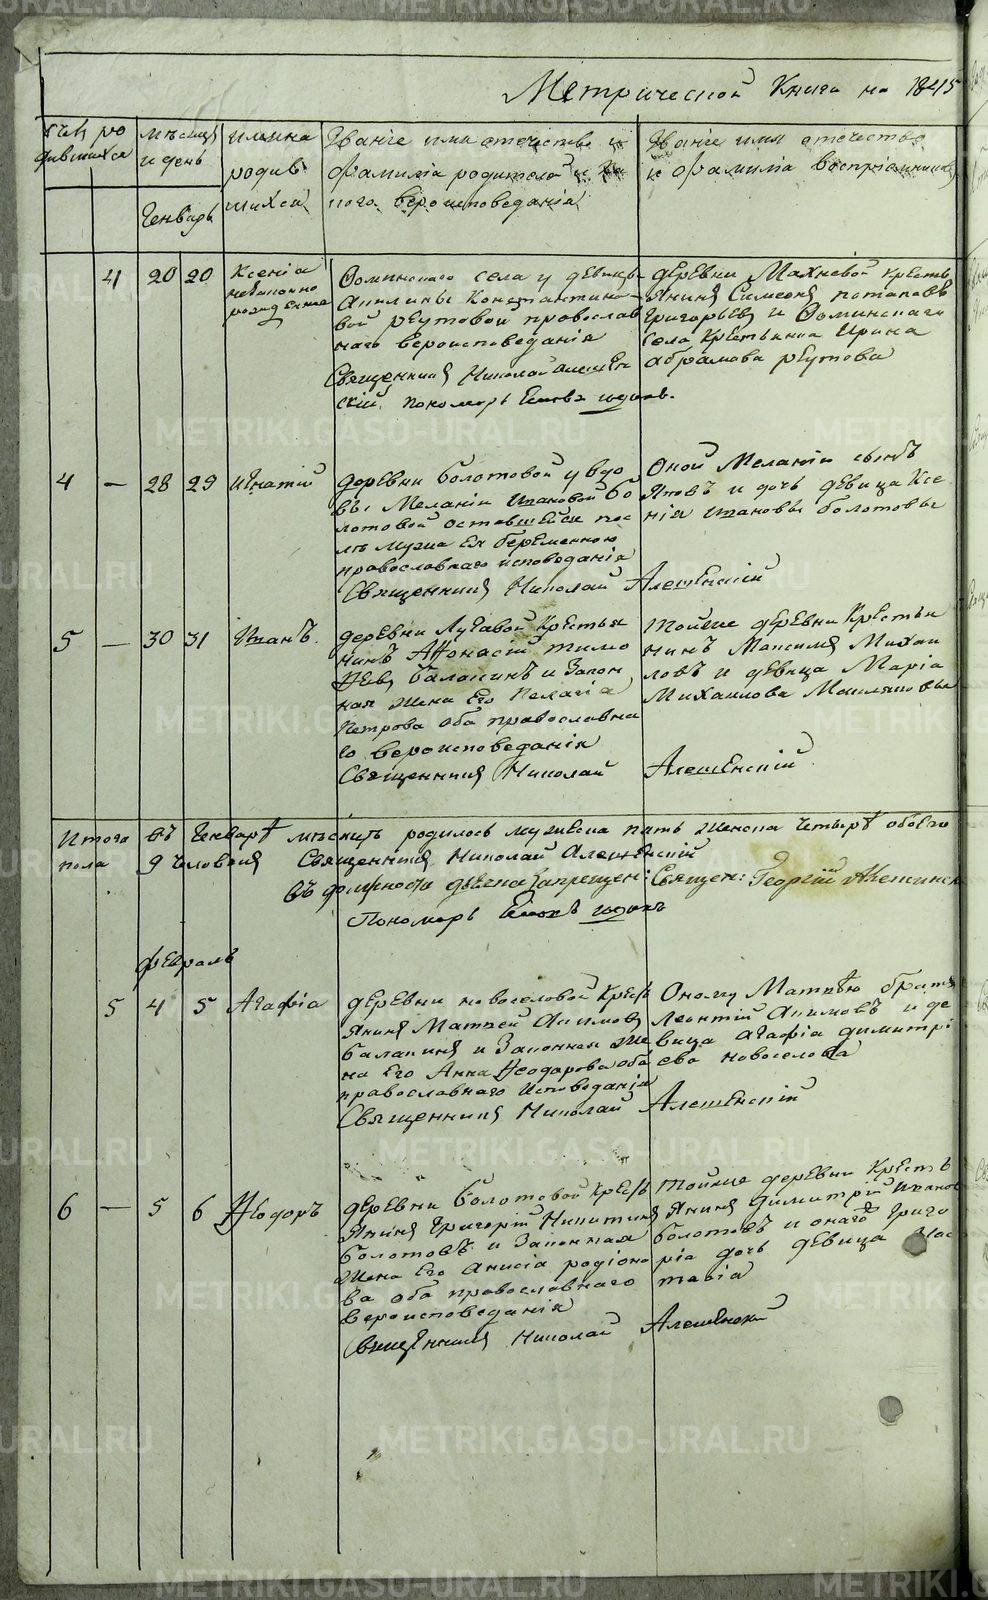 Метрической Книги на 1845
счет ро
дившихся
мѣсяцъ
и день
Генварь
имена
родив
шихся
Званiе имя отечество и
фамилiа родителей и ка
кого вѣроисповеданiя
Званiе имя отечество
и фамилiа воспрiемниковъ
4 20 20 Ксенiа
незаконно
рожденная
Фоминскаго села у девицы
Акилины Константино
вой Реутовой православ
наго вероисповеданiя
Священникъ Николай Алешен
скiй. пономарь
деревни Махневой кресть
янинъ Симеонъ потаповъ
Григорьевъ и Фоминскаго
села Крестьянка Ирина
абрамова Реутова
4 — 28 29 Игнатiй
деревни Болотовой у вдо
вы Меланiи Ивановой Бо
лотовой оставшейся пос
лѣ мужа ея беременною
православнаго исповеданiя
Священникъ Николай Алешенскiй
Оной Меланiи сынъ
Яковъ и дочь девица Ксе
нiя Ивановы болотовы
5 — 30 31 Иванъ.
деревни Лугавой Крестья
нинъ Афонасiй тимо
феевъ Балакинъ и Закон
ная жена Его Пелагiа
Петрова оба православна
го вероисповеданiя
Священникъ Николай Алешенскiй
тойже деревни Крестья
нинъ Максимъ Михаи
ловъ и девица Марiа
Михаилова
Итого въ Генварѣ мѣсяцѣ родилось мужеска пять женска четырѣ обоего
пола 9 человекъ Священникъ Николай Алешенскiй
въ должности дьячка Запрещен: Священ: Георгiй
Пономарь
февраль
5 4 5 Агафiа
деревни новоселовой Кресть
янинъ Матвей Акимовъ
Балакинъ и Законная же
на Его Анна Феодорова оба
православнаго исповеданiя
Священникъ Николай Алешенскiй
Оному Матвѣю братъ
Леонтiй Акимовъ и де
вица агафiа димитрi
ева новоселова
6 — 5 6 Феодоръ
деревни Болотовой Кресть
янинъ Григорiй Никитинъ
болотовъ и Законная
жена Его Анисiа родiоно
ва оба православнаго
вероисповеданiя
Священникъ Николай Алешенскiй
тойже деревни Кресть
янинъ димитрiй Иванов
болотовъ и онаго Григо
рiа дочь девица Нас
тасiа